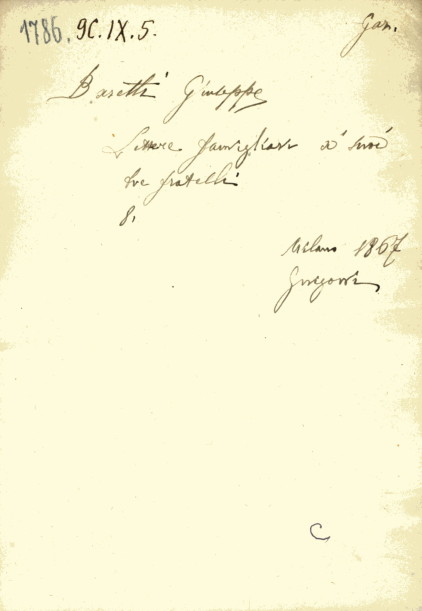 1786. 9C. IX. 5. Gan.
Baretti Giuseppe
Lettere famigliari a' suoi
tre fratelli
8.
Milano 1867
Guigoni
C